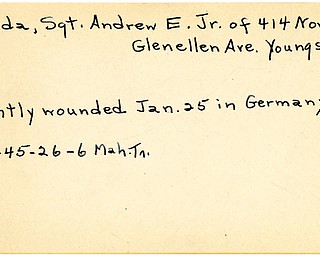 da, Sgt. Andrew E. Jr. of 414 Nor
Glenellen Ave. Youngs
ntly wounded Jan. 25 in Germany
-45-26-6 Mah. Tr.